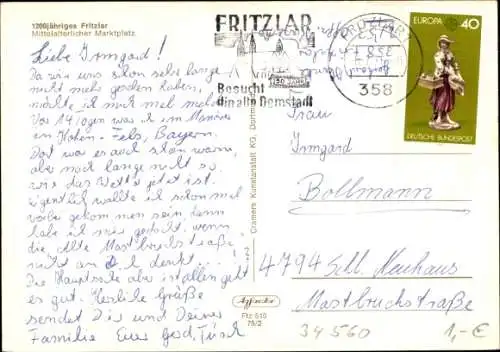 1200jähriges Fritzlar
Mittelalterlicher Marktplatz
FRITZLAR
Besucht
die alte Domstadt
1250 JAHRE
FRITZLAR
358
EUROPA 40
DEUTSCHE BUNDESPOST
Liebe Irmgard!
Da wir uns schon sehr lange
nicht mehr gesehen haben,
möchte ich mich mal melden.
Vor 14 Tagen war ich im Manöver
in Hohen-Fels, Bayern.
Dort war es auch schon warm,
aber noch lange nicht so,
wie das Wetter jetzt ist.
Eigentlich wollte ich schon mal
vorbei gekommen sein, dann
habe ich mir gedacht, wenn
die Alte Mastbruchstraße
nicht an denkt...!
Die Hauptsache aber ist allen geht
es gut. Herzliche Grüße
sendet Dir und Deiner
Familie Euer
Cramers Kunstanstalt KG, Dortmund
Ftz 510
75/2
Frau
Irmgard
Bollmann
4794 Schl. Neuhaus
Mastbruchstraße
34560
1,-€